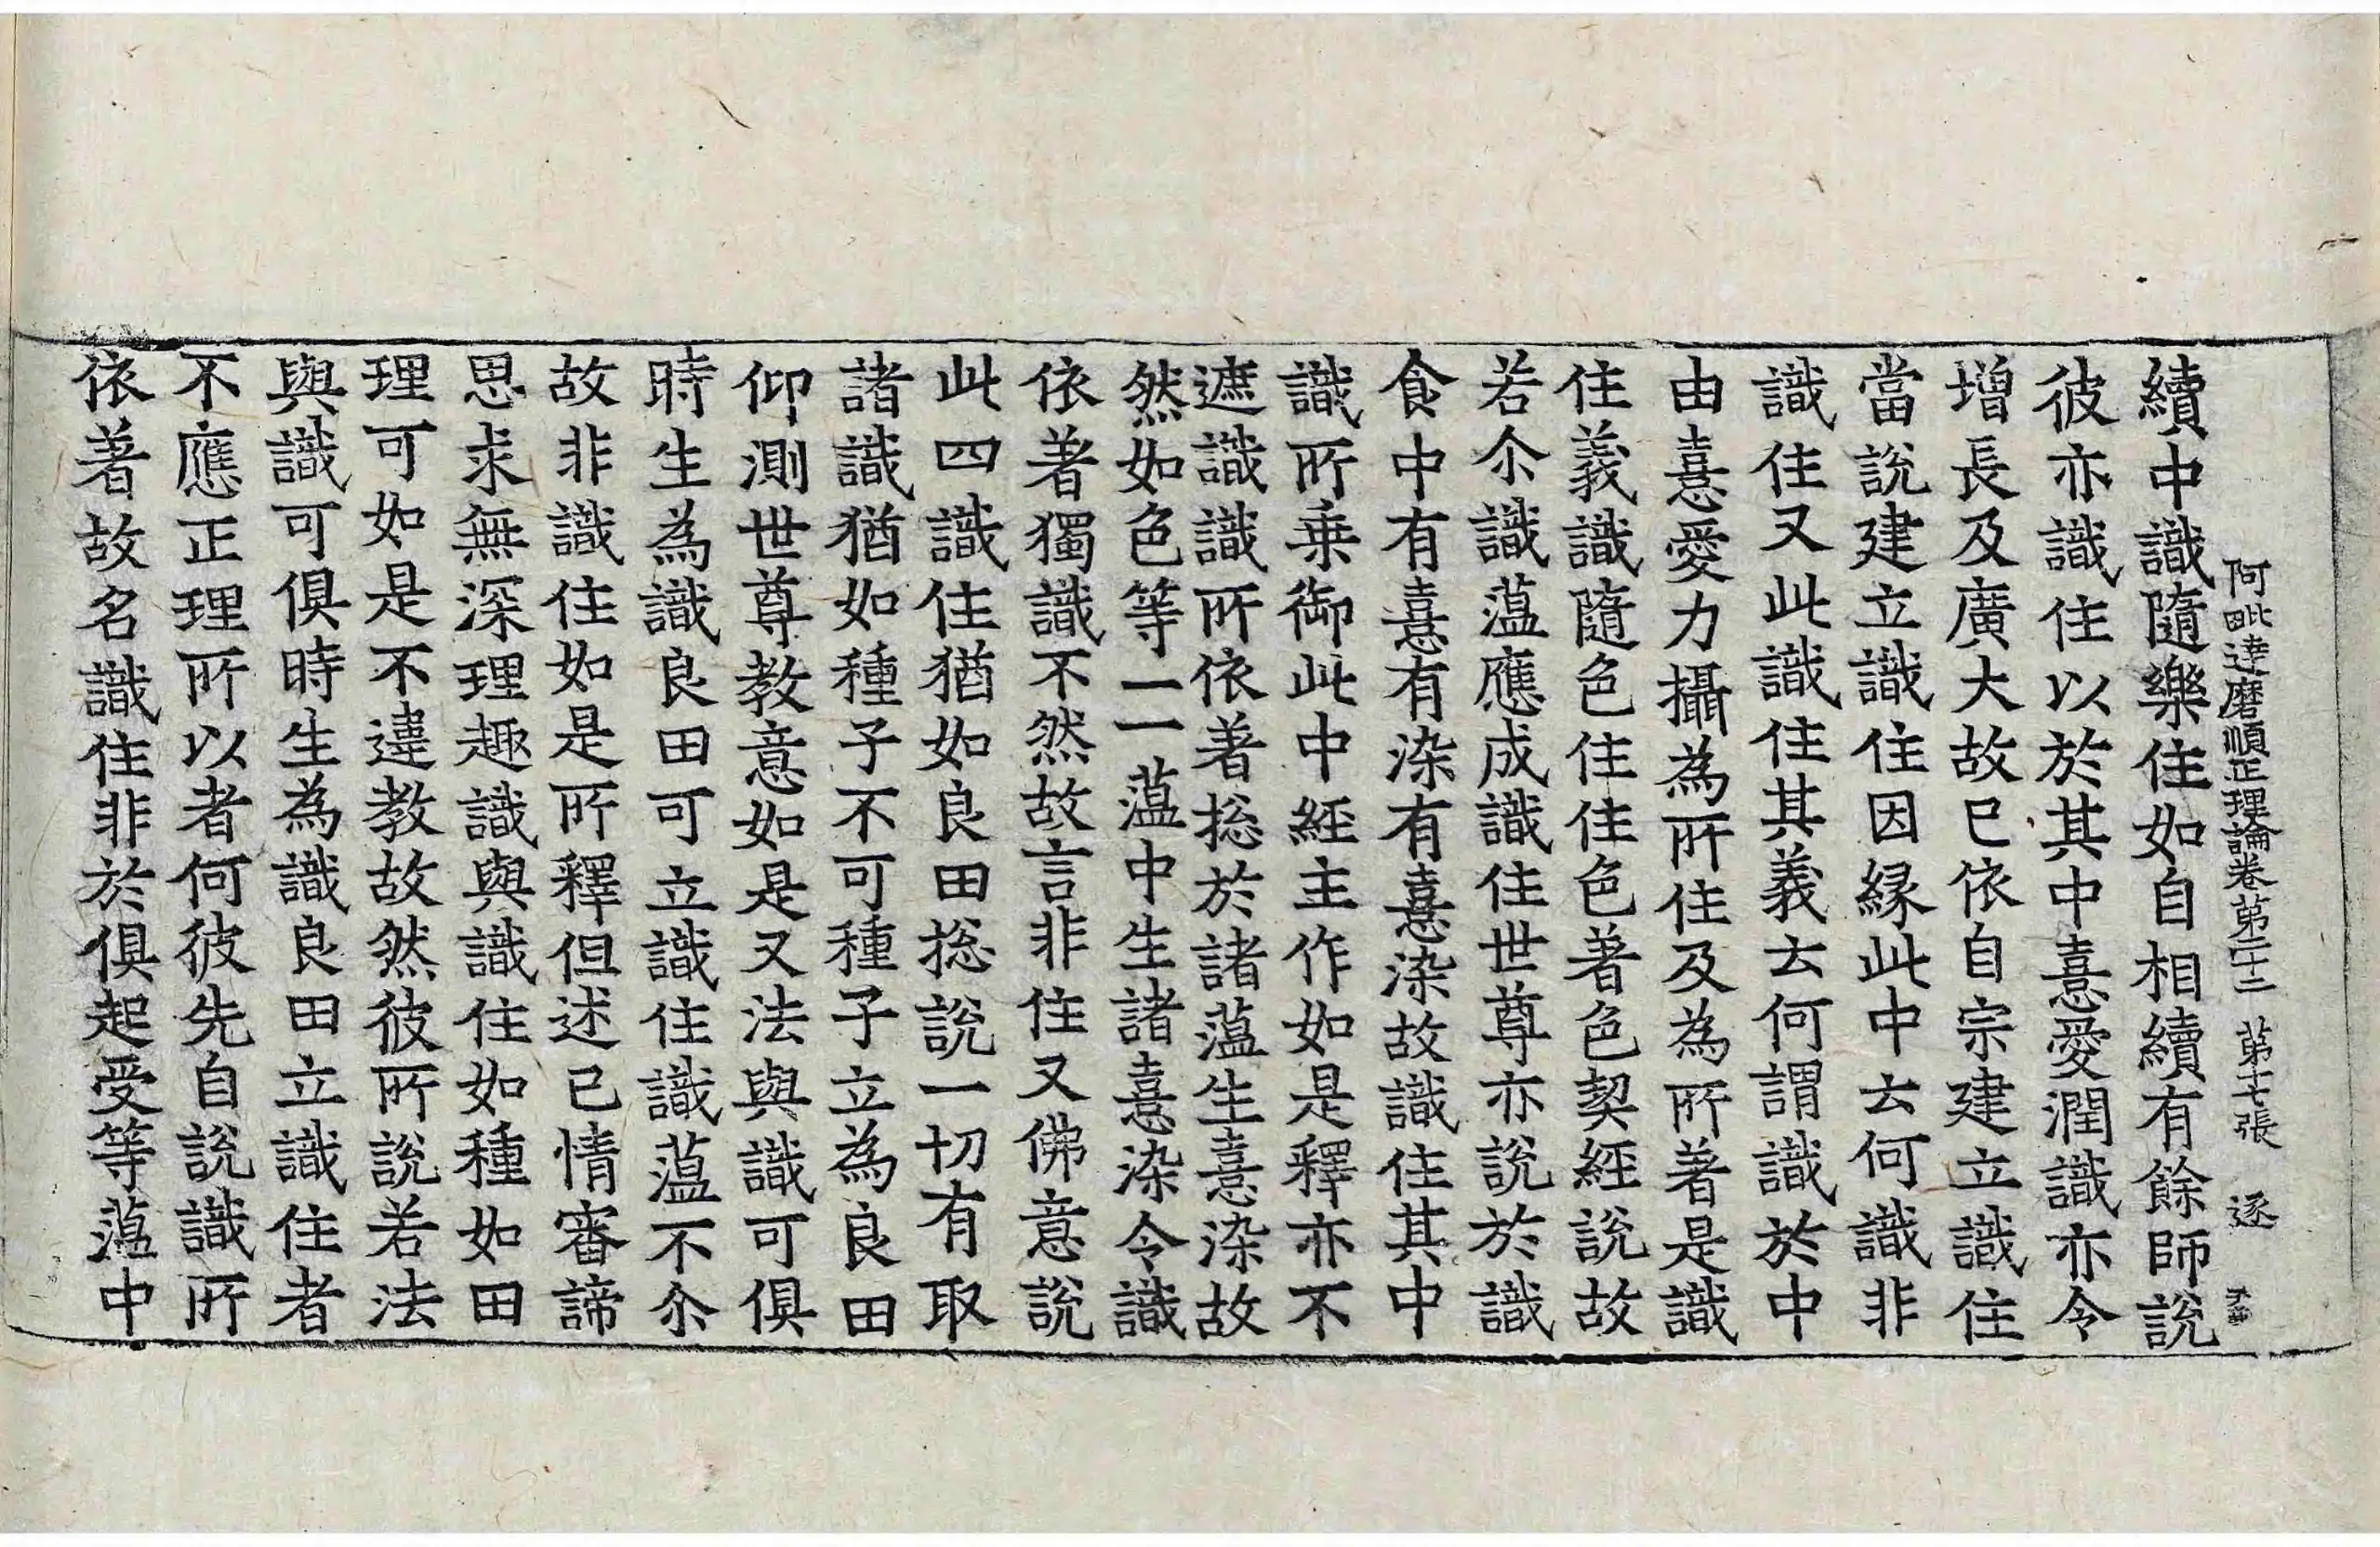 阿毗達磨順正理論卷第二十二 第十七張 逐
續中識隨樂住如自相續有餘師說
彼亦識住以於其中憙愛潤識亦令
增長及廣大故已依自宗建立識住
當說建立識住因緣此中云何識非
識住又此識住其義云何謂識於中
由憙愛力攝為所住及為所著是識
住義識隨色住住色著色契經說故
若尒識薀應成識住世尊亦說於識
食中有憙有染有憙染故識住其中
識所乗御此中經主作如是釋亦不
遮識識所依著捴於諸薀生憙染故
然如色等一一薀中生諸憙染令識
依著獨識不然故言非住又佛意說
此四識住猶如良田捴說一切有取
諸識猶如種子不可種子立為良田
仰測世尊教意如是又法與識可俱
時生為識良田可立識住識薀不尒
故非識住如是所釋但述己情審諦
思求無深理趣識與識住如種如田
理可如是不違教故然彼所說若法
與識可俱時生為識良田立識住者
不應正理所以者何彼先自說識所
依著故名識住非於俱起受等薀中